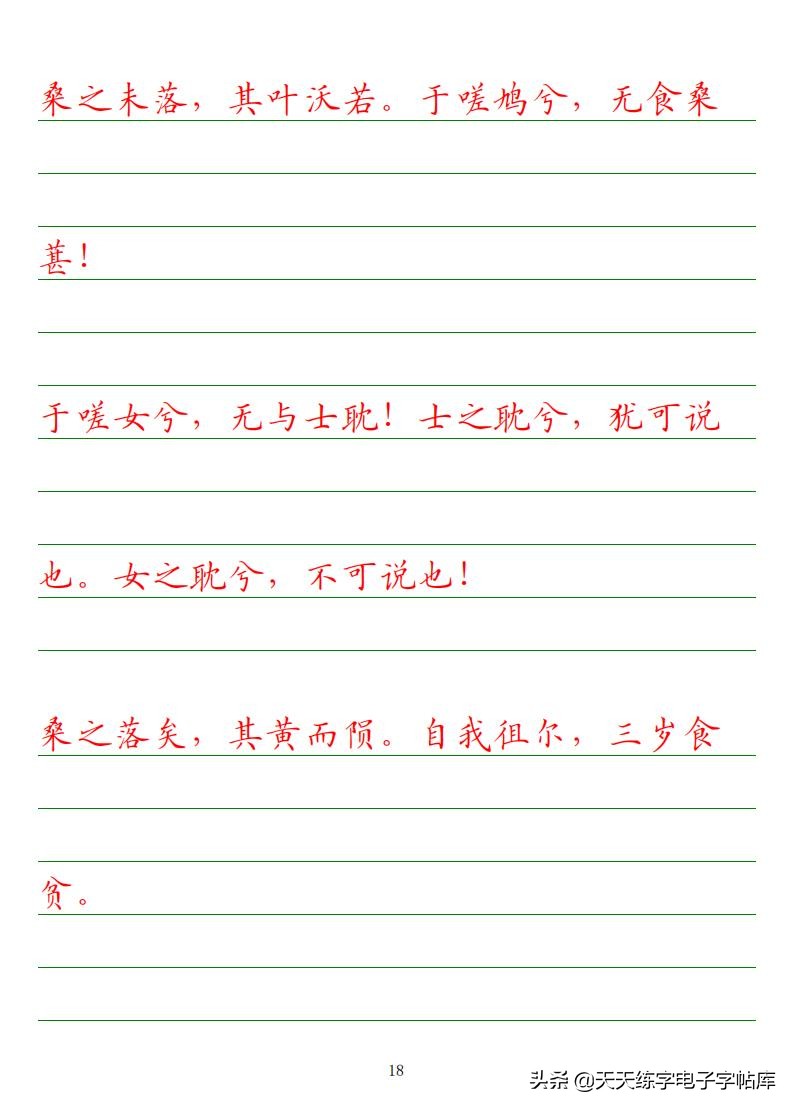 桑之未落，其叶沃若。于嗟鸠兮，无食桑
葚！
于嗟女兮，无与士耽！士之耽兮，犹可说
也。女之耽兮，不可说也！
桑之落矣，其黄而陨。自我徂尔，三岁食
贫。
18
头条 @天天练字电子字帖库